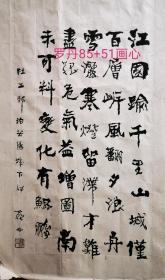 罗丹85+51画心
江國踰千里山城僅
百層岸風翻夕浪舟
雪灑寒燈留滯才難
盡艱危氣益增圖南
未可料變化有鯤鵬
杜工部泊岳陽城下作